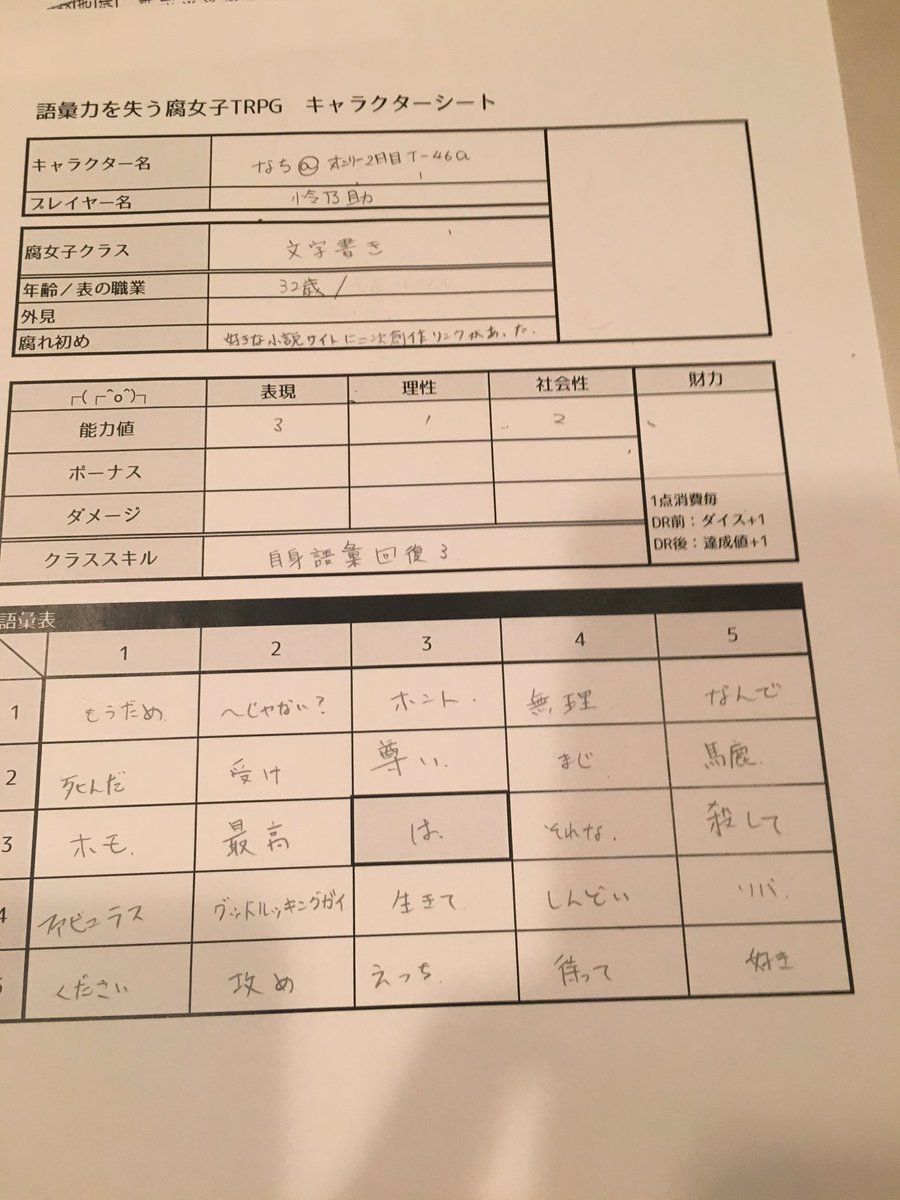 語彙力を失う腐女子TRPG キャラクターシート
キャラクター名 なち@オンリー2日目T-46a
プレイヤー名 怜乃助
腐女子クラス 文字書き
年齢/表の職業 32歳/
外見
腐れ初め 好きな小説サイトに二次創作リンクがあった.
┌(┌^o^)┐ 表現 理性 社会性 財力
能力値 3 1 2
ボーナス
ダメージ
1点消費毎
DR前:ダイス+1
DR後:達成値+1
クラススキル 自身語彙回復3
語彙表
1 2 3 4 5
1 もうだめ 〜じゃない? ホント. 無理 なんで
2 死んだ 受け 尊い. まじ 馬鹿.
3 ホモ. 最高 は. それな. 殺して
4 ファビュラス グットルッキングガイ 生きて しんどい リバ
ください 攻め えっち 待って 好き